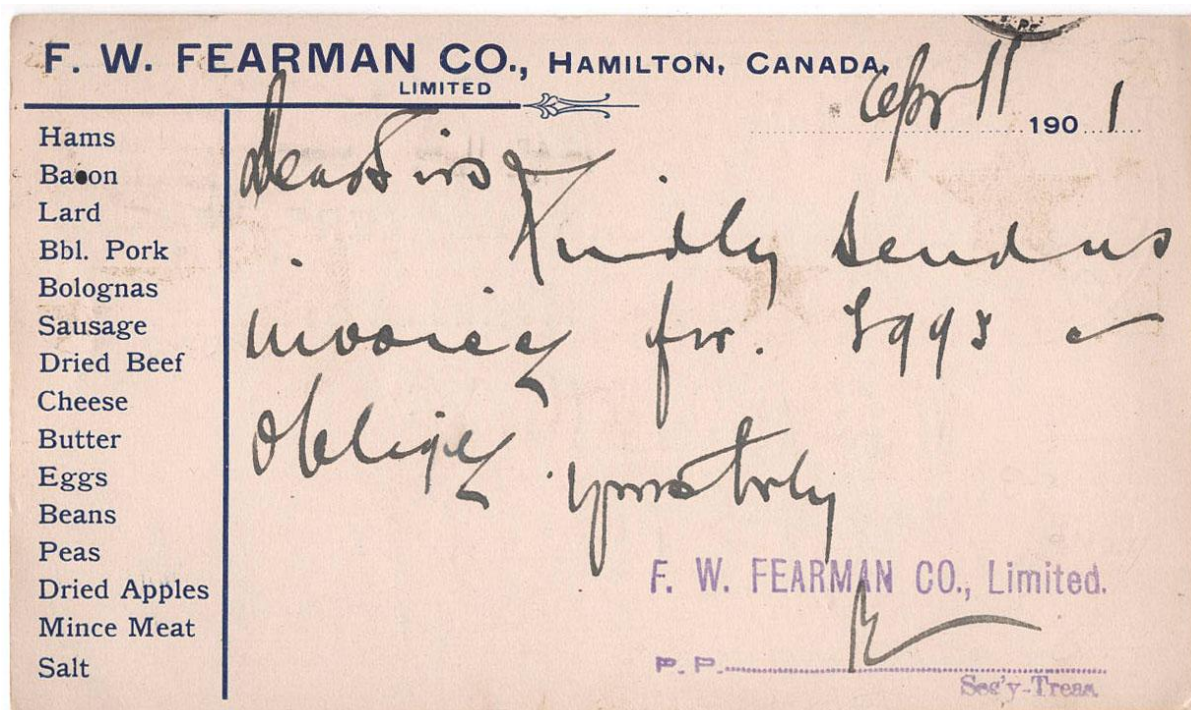 F. W. FEARMAN CO., HAMILTON, CANADA,
LIMITED
Apr 11 190 1
Hams
Bacon
Lard
Bbl. Pork
Bolognas
Sausage
Dried Beef
Cheese
Butter
Eggs
Beans
Peas
Dried Apples
Mince Meat
Salt
Dear Sirs
Kindly send us
invoice for. Eggs &
oblige
yours trly
F. W. FEARMAN CO., Limited.
P. P.
Sec'y-Treas.